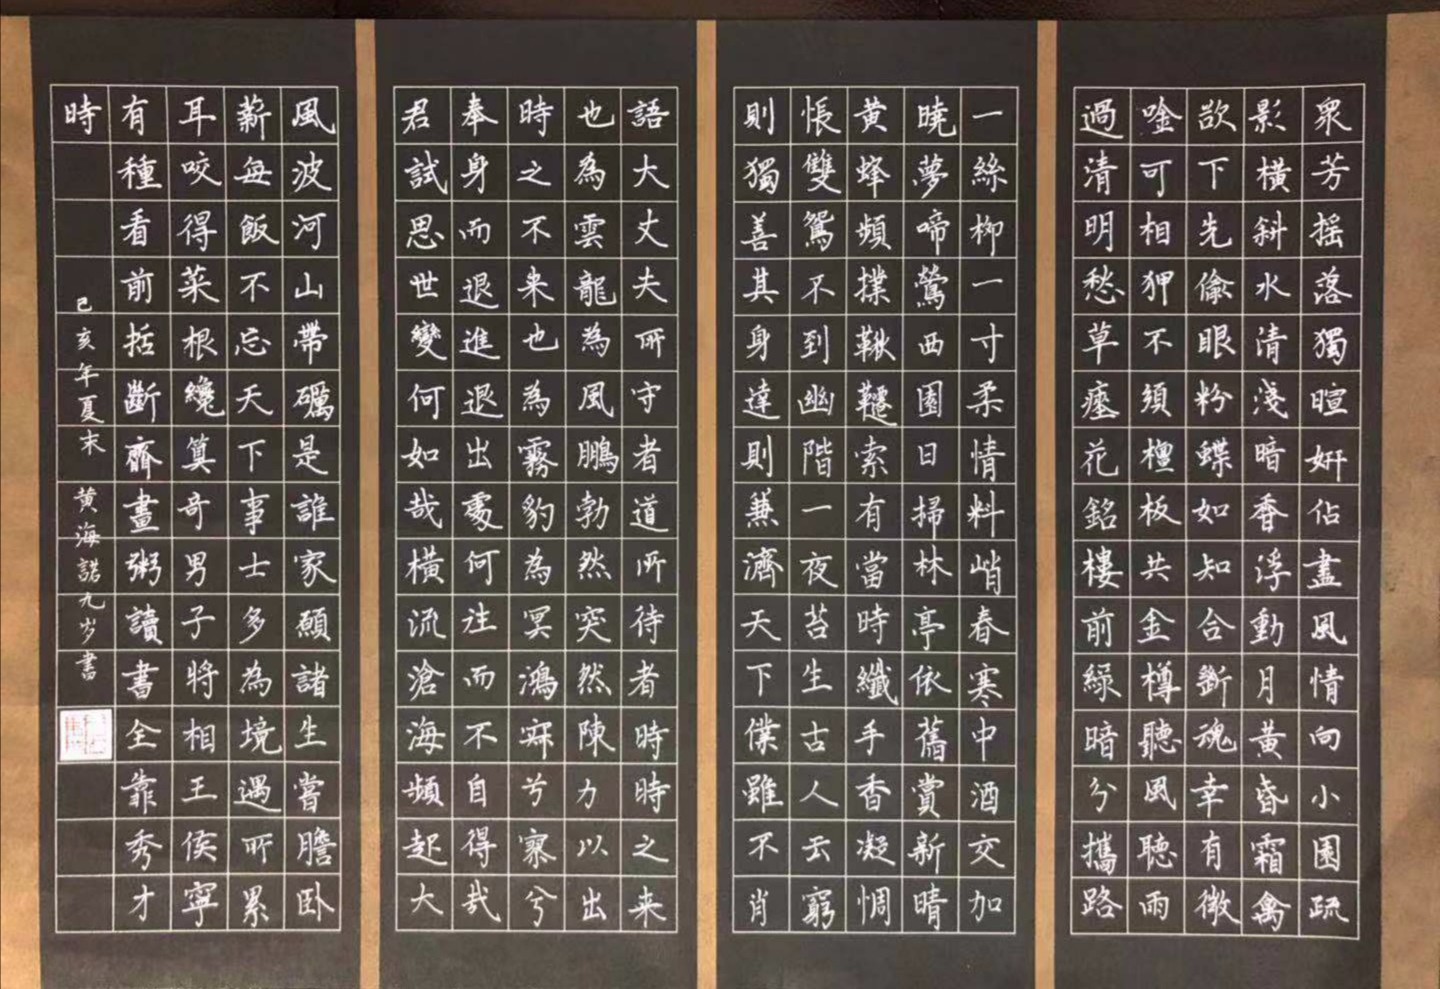 衆芳摇落獨暄妍佔盡風情向小園疏
影橫斜水清淺暗香浮動月黃昏霜禽
欲下先偷眼粉蝶如知合斷魂幸有微
唫可相狎不須檀板共金樽聽風聽雨
過清明愁草瘞花銘樓前綠暗分攜路
一絲柳一寸柔情料峭春寒中酒交加
曉夢啼鶯西園日掃林亭依舊賞新晴
黃蜂頻撲鞦韆索有當時纖手香凝惆
悵雙鴛不到幽階一夜苔生古人云窮
則獨善其身達則兼濟天下僕雖不肖
語大丈夫所守者道所待者時時之来
也為雲龍為風鵬勃然突然陳力以出
時之不来也為霧豹為冥鴻寂兮寥兮
奉身而退進退出處何往而不自得哉
君試思世變何如哉橫流滄海頻起大
風波河山帶礪是誰家願諸生嘗膽卧
薪每飯不忘天下事士多為境遇所累
耳咬得菜根纔算奇男子將相王侯寧
有種看前括斷齊畫粥讀書全靠秀才
時
己亥年夏末 黄海諾九岁書